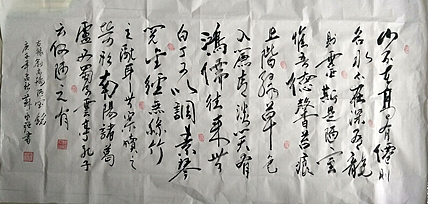 山不在高有僊則
名水不在深有龍
則靈斯是陋室
惟吾德馨苔痕
上階綠草色
入簾青談笑有
鴻儒往來無
白丁可以調素琴
閱金經無絲竹
之亂耳無案牘之
勞形南陽諸葛
廬西蜀子雲亭孔子
云何陋之有
右錄劉禹錫陋室銘